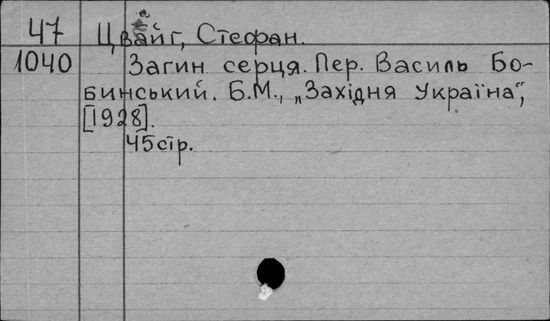 47 Цвайг, Стефан.
1040 Загин серця. Пер. Василь Бо-
бинський. Б.М., „Західня Україна",
[1928].
45стр.